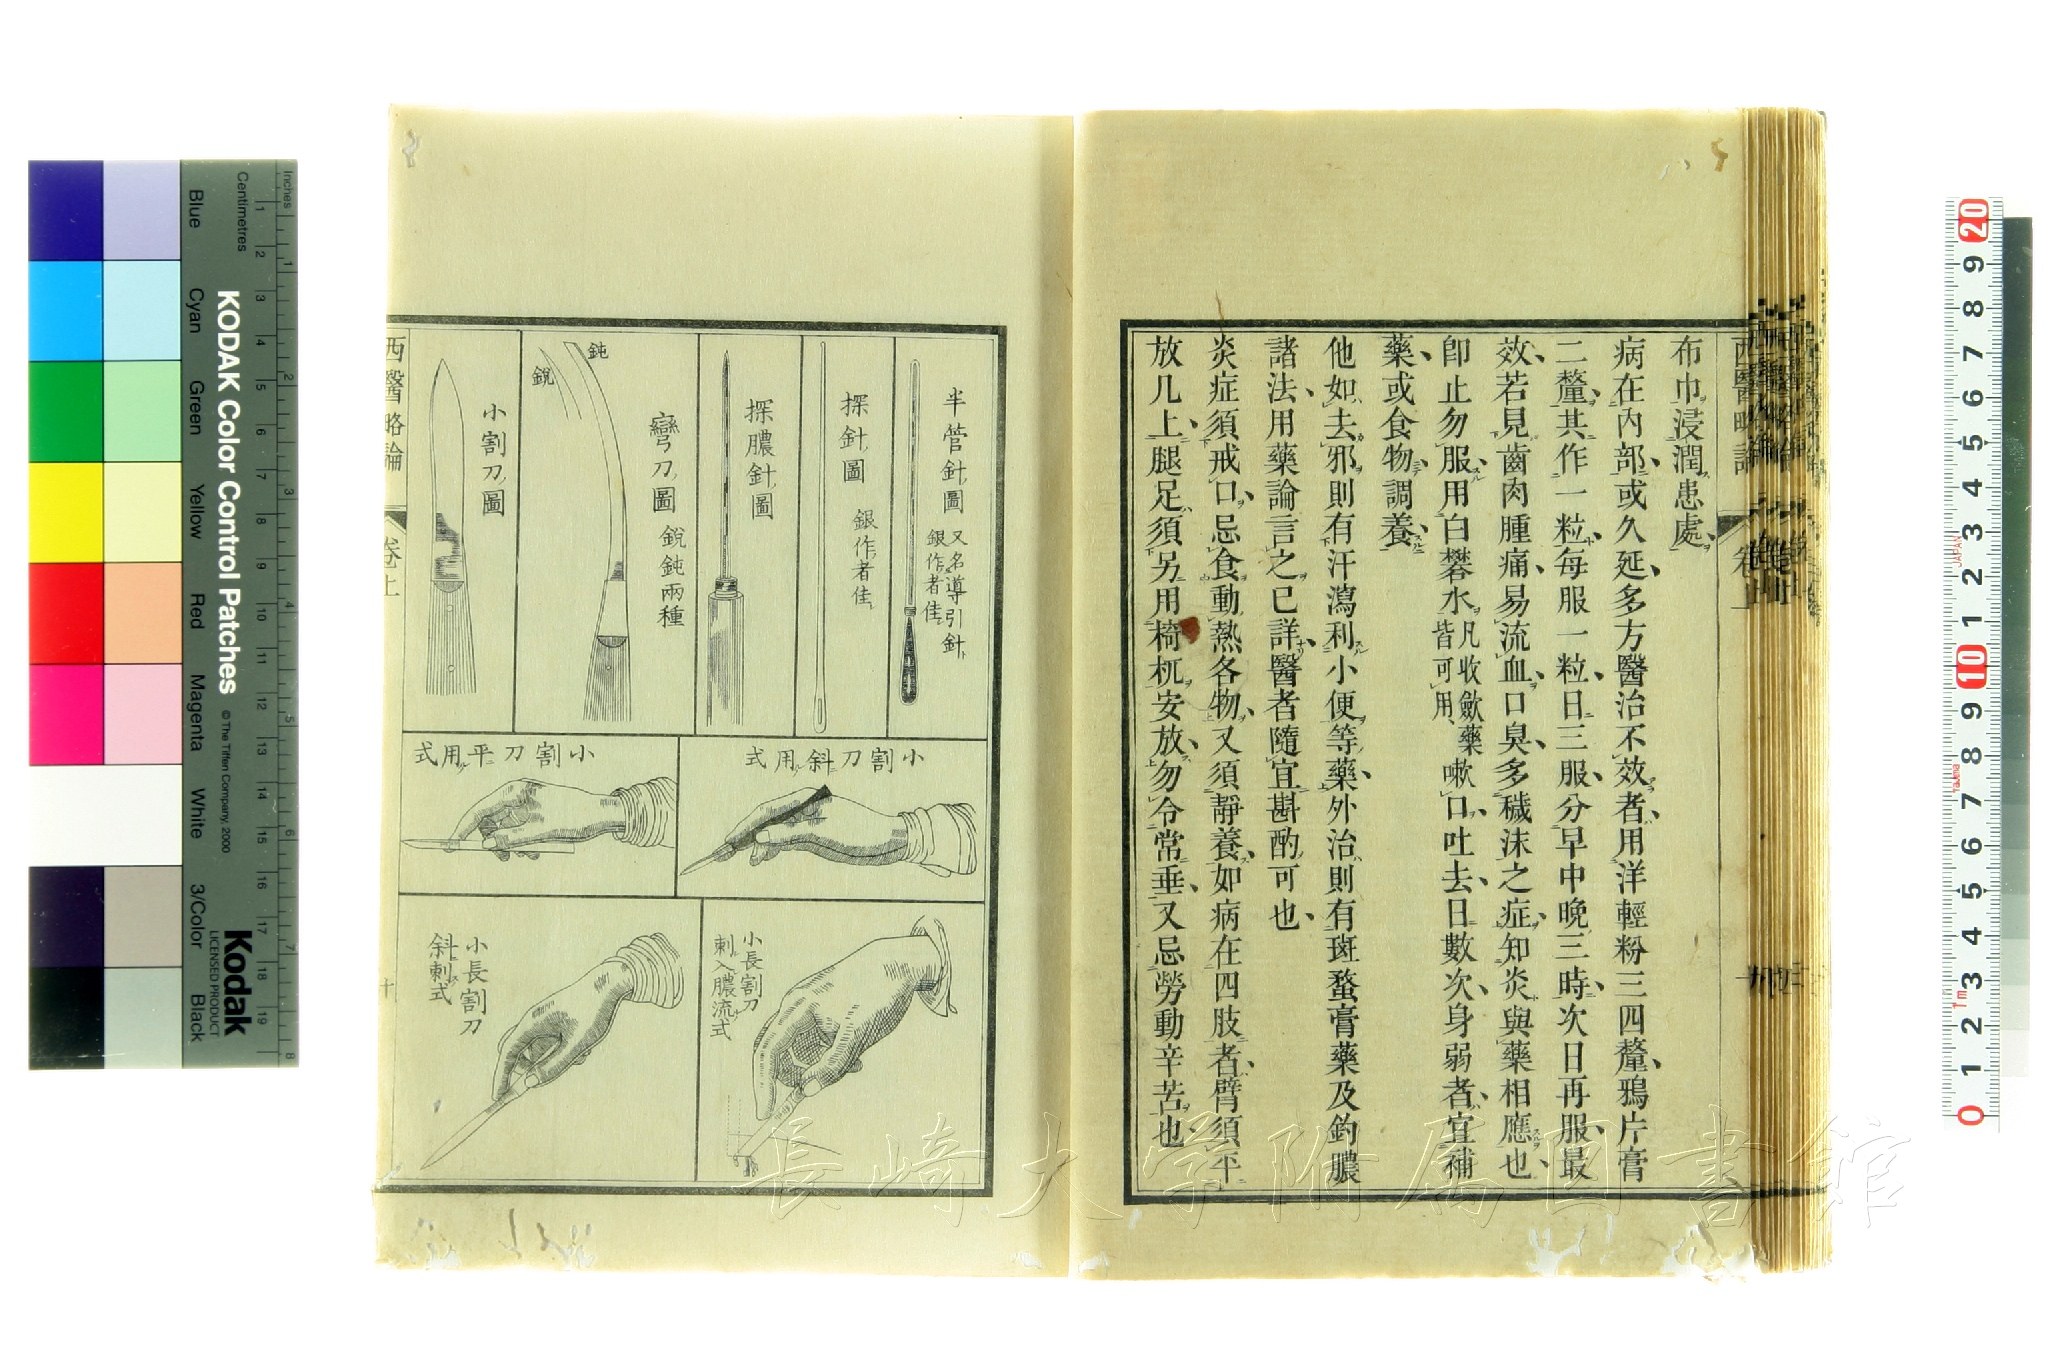 布巾浸潤患處、
病在內部、或久延、多方醫治不效者、用洋輕粉三四釐、鴉片膏
二釐、其作一粒、每服一粒、日三服、分早中晚三時、次日再服、最
效、若見齒肉腫痛、易流血、口臭、多穢沫之症、知炎與藥相應也、
卽止勿服、用白礬水凡收歛藥皆可用、嗽口、吐去、日數次、身弱者、宜補
藥、或食物、調養、
他如去邪、則有汗瀉利小便等藥、外治、則有斑蝥膏藥及釣膿
諸法、用藥論言之已詳、醫者隨宜斟酌可也、
炎症須戒口、忌食動熱各物、又須靜養、如病在四肢者、臂須平
放几上、腿足須另用椅杌安放、勿令常垂、又忌勞動辛苦也、
西醫略論
卷上
半管針圖
又名導引針、
銀作者佳、
探針圖
銀作者佳、
探膿針圖
彎刀圖
銳鈍兩種
鈍
銳
小割刀圖
小割刀斜用式
小割刀平用式
小長割刀
刺入膿流式
小長割刀
斜刺式
西醫略論
卷上
十
長崎大学附属図書館
KODAK Color Control Patches
© The Tiffen Company, 2000
Kodak
LICENSED PRODUCT
Inches
Centimetres
1 2 3 4 5 6 7 8 9 10 11 12 13 14 15 16 17 18 19
1 2 3 4 5 6 7 8
Blue
Cyan
Green
Yellow
Red
Magenta
White
3/Color
Black
20 9 8 7 6 5 4 3 2 1 10 9 8 7 6 5 4 3 2 1 0